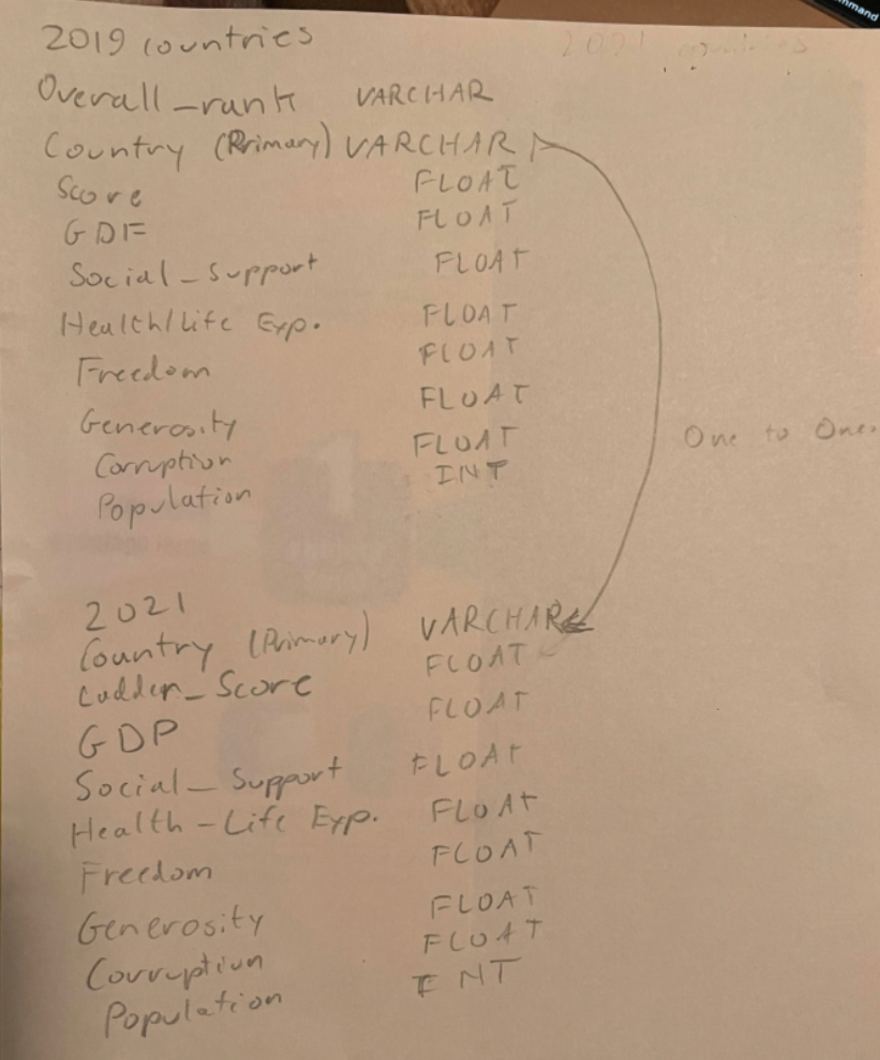 2019 countries
Overall_rank VARCHAR
Country (Primary) VARCHAR
Score FLOAT
GDP FLOAT
Social_Support FLOAT
Health/Life Exp. FLOAT
Freedom FLOAT
Generosity FLOAT
Corruption FLOAT
Population INT
One to One.
2021
Country (Primary) VARCHAR
Ladder_Score FLOAT
GDP FLOAT
Social_Support FLOAT
Health-Life Exp. FLOAT
Freedom FLOAT
Generosity FLOAT
Corruption FLOAT
Population INT